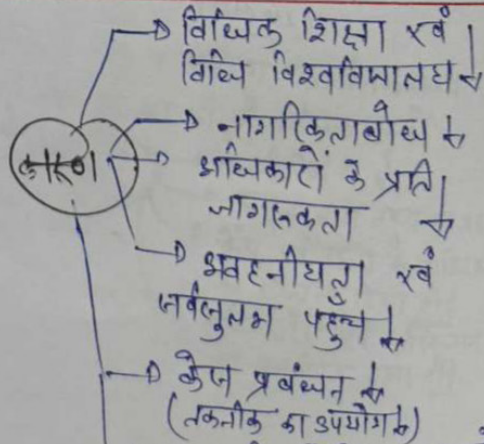 → विधिक शिक्षा एवं
विधि विश्वविद्यालय ↓
→ नागरिकताबोध ↓
कारण → अधिकारों के प्रति
जागरूकता ↓
→ अवहनीयता एवं
सर्वसुलभ पहुँच ↓
→ केस प्रबंधन ↓
(तकनीक का उपयोग ↓)